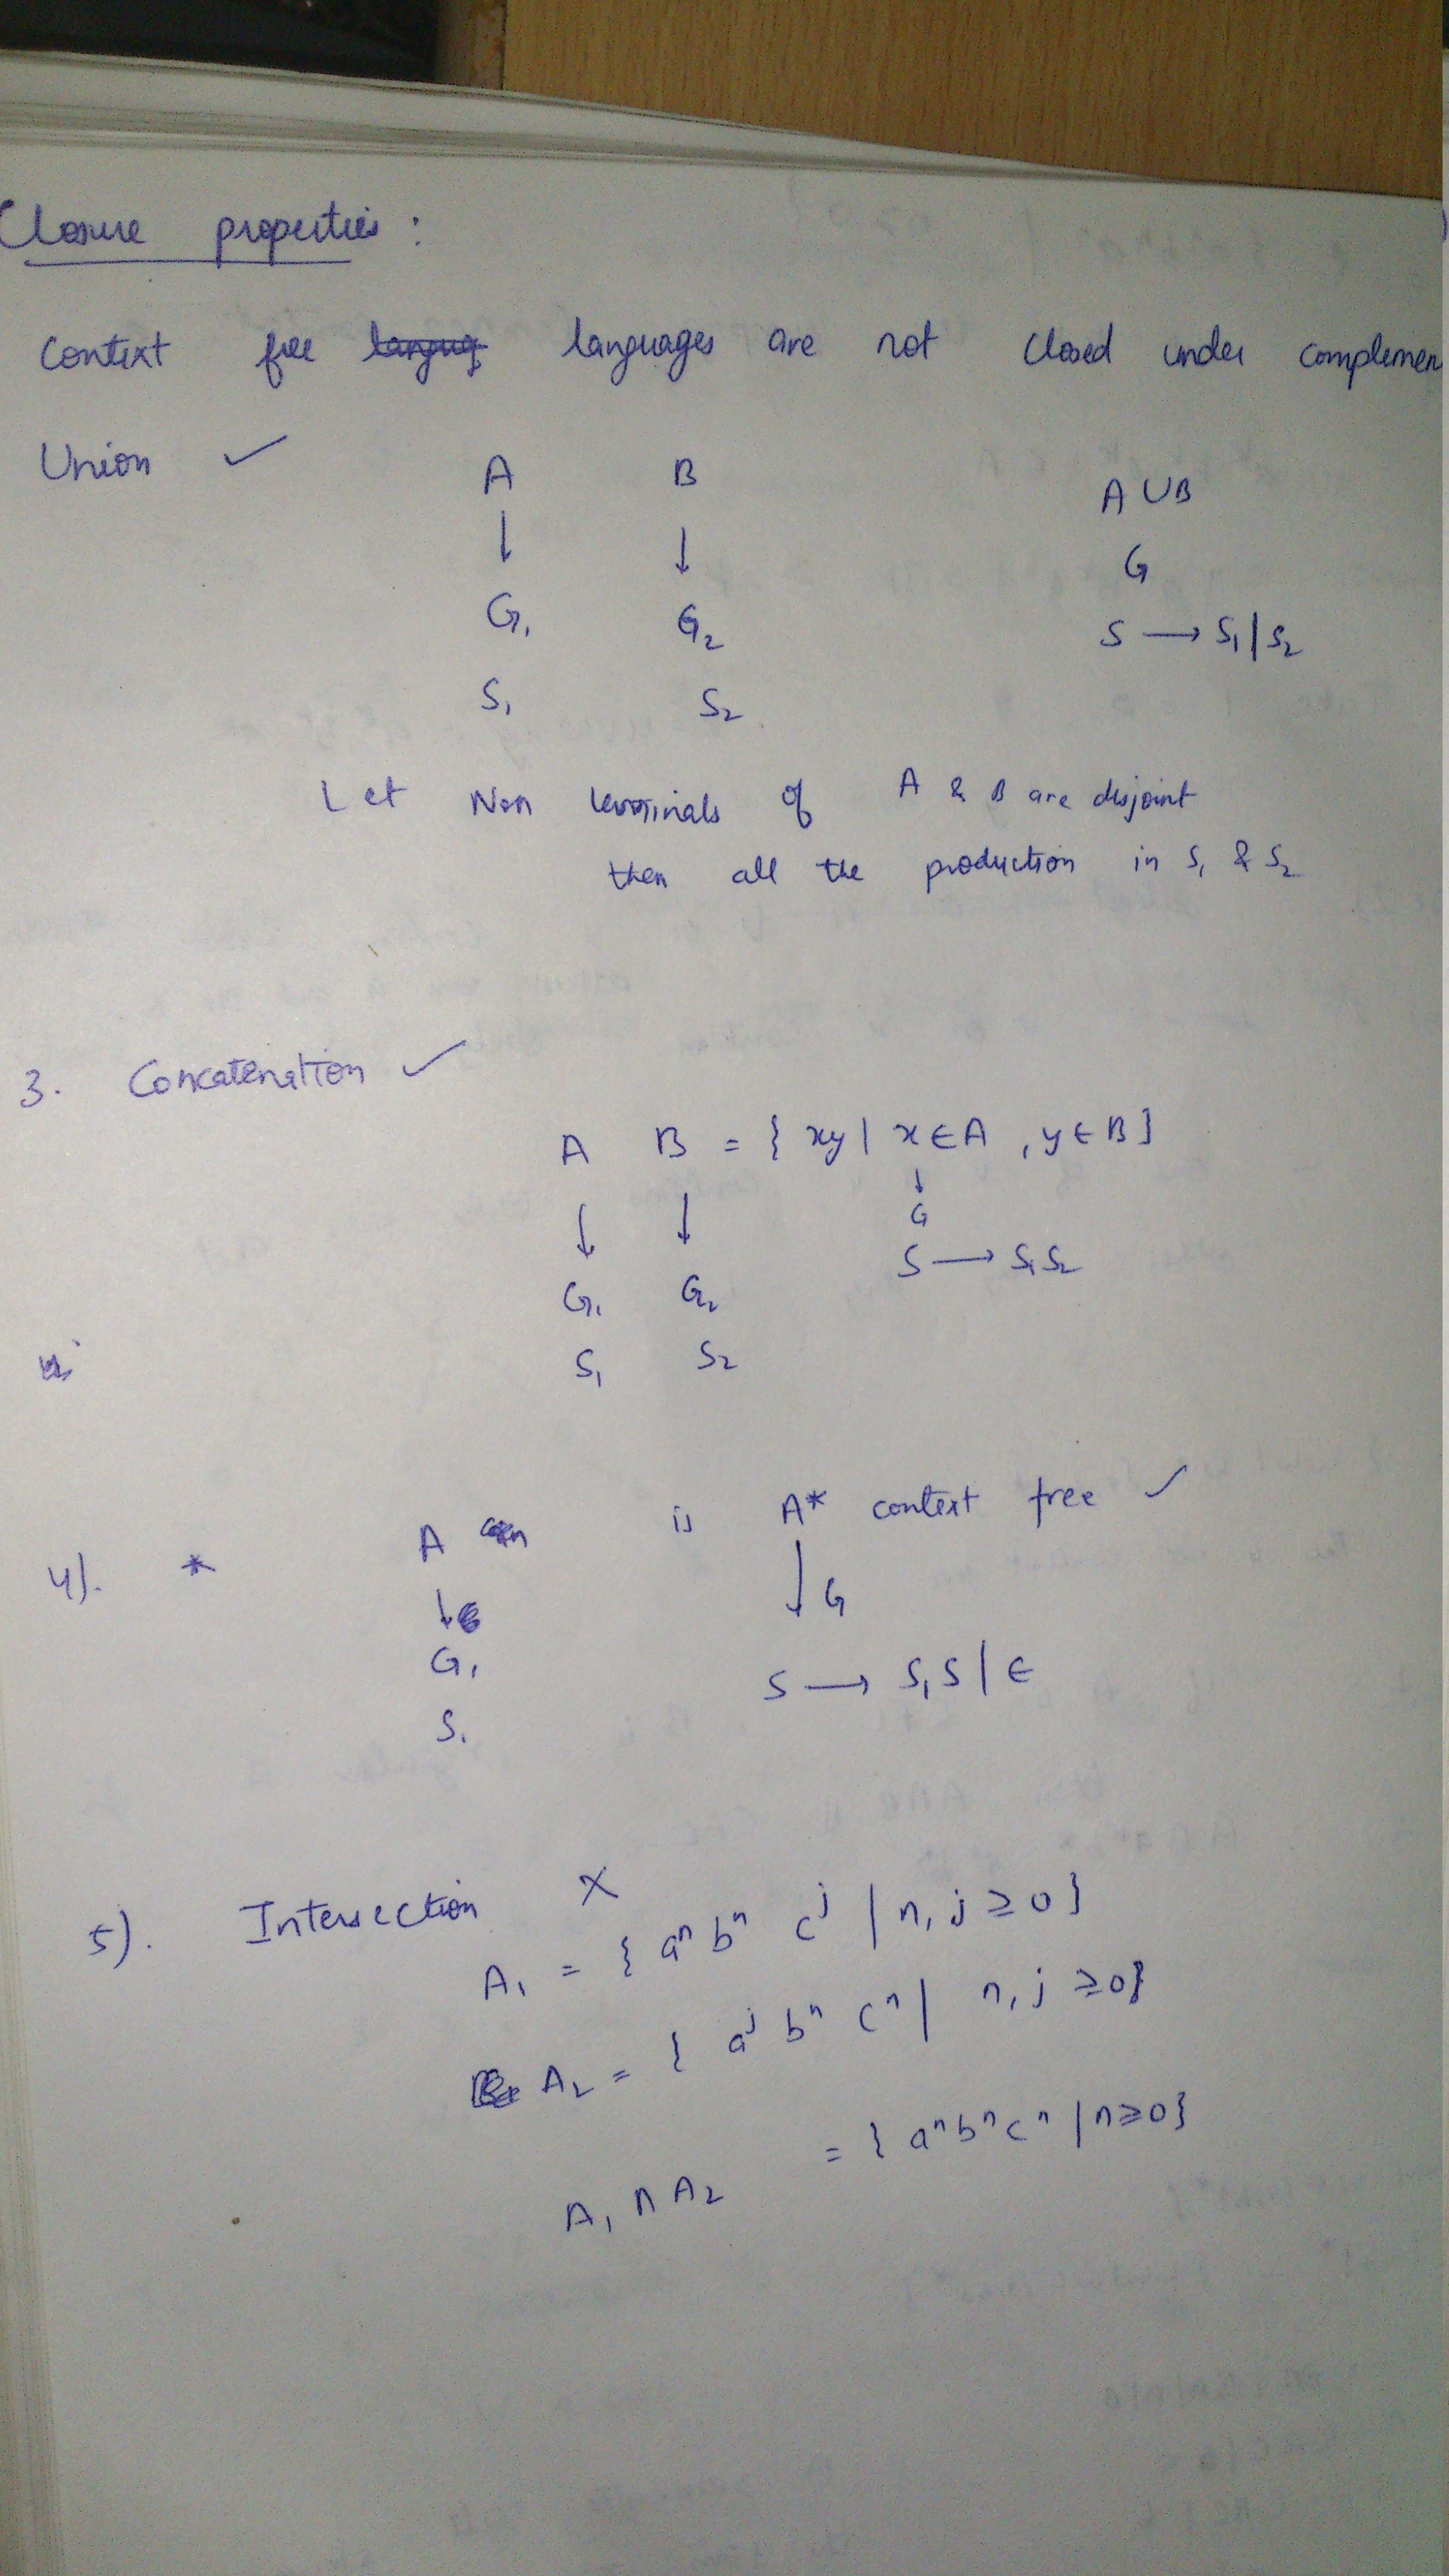 Closure properties :
Context free languages are not closed under complemen
Union ✓ A B A ∪ B
↓ ↓ G
G₁ G₂ S → S₁ | S₂
S₁ S₂
Let Non terminals of A & B are disjoint
then all the production in S₁ & S₂
3. Concatenation ✓
A B = { xy | x ∈ A , y ∈ B }
↓ ↓ ↓
G
S → S₁ S₂
G₁ G₂
S₁ S₂
4). * A is A* context free ✓
↓ ↓ G
G₁
S → S₁ S | ϵ
S₁
5). Intersection X
A₁ = { aⁿ bⁿ cʲ | n, j ≥ 0 }
A₂ = { aʲ bⁿ cⁿ | n, j ≥ 0 }
A₁ ∩ A₂ = { aⁿ bⁿ cⁿ | n ≥ 0 }